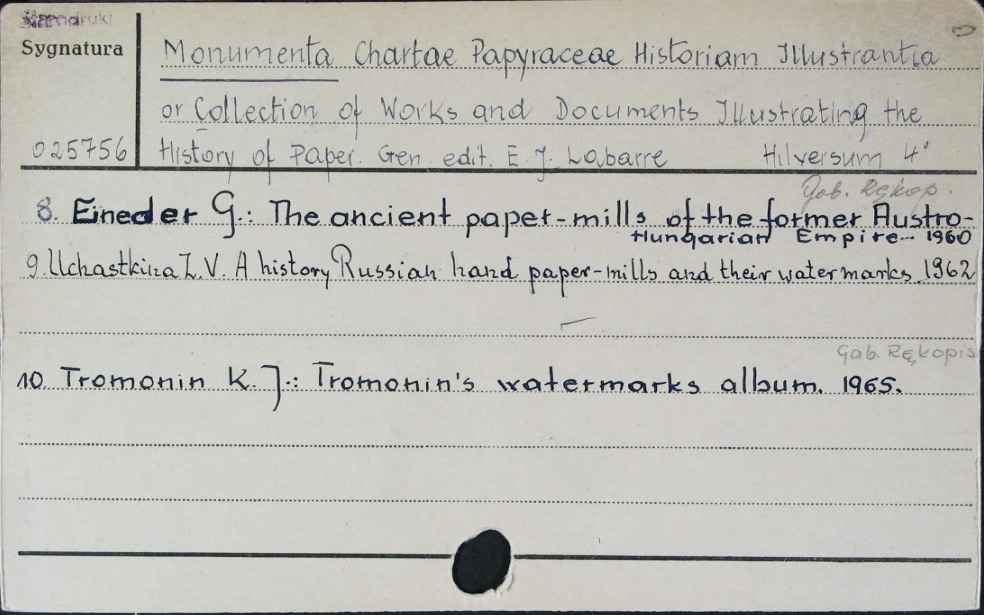 Sygnatura
Monumenta Chartae Papyraceae Historiam Illustrantia
or Collection of Works and Documents Illustrating the
025756 History of Paper. Gen. edit. E. J. Labarre Hilversum 4°
Gab. Rękop.
8. Eineder G.: The ancient paper-mills of the former Austro-
Hungarian Empire 1960
9. Uchastkina Z. V. A history Russian hand paper-mills and their watermarks 1962
Gab. Rękopis
10. Tromonin K. J.: Tromonin's watermarks album. 1965.